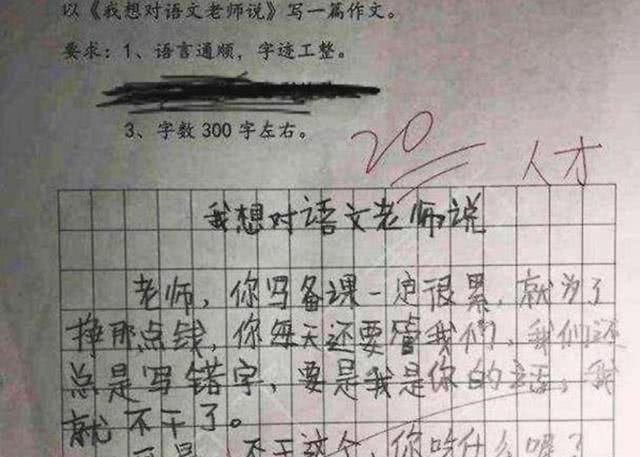 以《我想对语文老师说》写一篇作文。
要求：1、语言通顺，字迹工整。
3、字数300字左右。
20
人才
我想对语文老师说
老师，你写备课一定很累，就为了
挣那点钱，你每天还要管我们，我们还
总是写错字，要是我是你的话，我
就不干了。
可是，不干这个，你吃什么喝？